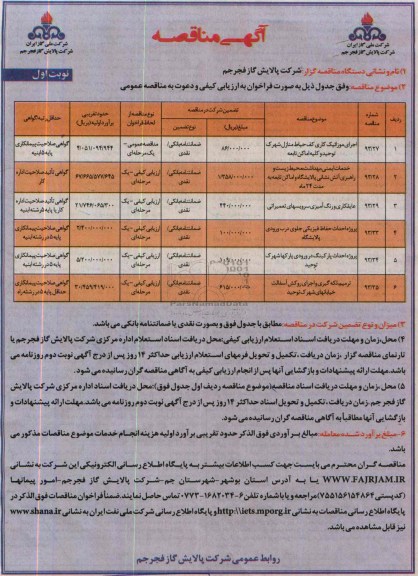 آگهی مناقصه
شرکت ملی گاز ایران
شرکت پالایش گاز فجرجم
شرکت ملی گاز ایران
شرکت پالایش گاز فجرجم
نوبت اول
۱) نام و نشانی دستگاه مناقصه گزار: شرکت پالایش گاز فجرجم
۲) موضوع مناقصه: وفق جدول ذیل به صورت فراخوان به ارزیابی کیفی و دعوت به مناقصه عمومی
ردیف | شماره مناقصه | موضوع مناقصه | تضمین شرکت در مناقصه | مبلغ (ریال) | نوع تضمین | نوع مناقصه از لحاظ فراخوان | حدود تقریبی برآورد اولیه (ریال) | حداقل رتبه/گواهی
۱ | ۹۳/۲۷ | اجرای موزائیک کاری کف حیاط منازل شهرک توحید و کلیه اماکن تابعه | ضمانتنامه بانکی/نقدی | مناقصه عمومی - یک مرحله‌ای | گواهی صلاحیت پیمانکاری پایه ۵ ابنیه
۲ | ۹۳/۲۸ | خدمات ایمنی، بهداشت محیط زیست و راهبری آتش نشانی پالایشگاه و اماکن تابعه به مدت ۲۴ ماه | ضمانتنامه بانکی/نقدی | ارزیابی کیفی - یک مرحله‌ای | گواهی تأئید صلاحیت اداره کار
۳ | ۹۳/۲۹ | عایقکاری و رنگ آمیزی سرویسهای تعمیراتی | ۴۴۰/۰۰۰/۰۰۰ | ضمانتنامه بانکی/نقدی | ارزیابی کیفی - یک مرحله‌ای
۴ | ۹۳/۳۳ | پروژه احداث حفاظ فیزیکی جلوی درب ورودی پالایشگاه | ۱۰۰/۰۰۰/۰۰۰ | ضمانتنامه بانکی/نقدی | ارزیابی کیفی - یک مرحله‌ای | گواهی صلاحیت پیمانکاری پایه ۵ در رشته ابنیه
۵ | ۹۳/۳۴ | پروژه احداث پارکینگ در ورودی پارکها شهرک توحید | ضمانتنامه بانکی/نقدی | ارزیابی کیفی - یک مرحله‌ای | ۵/۲۰۰/۰۰۰/۰۰۰ | گواهی صلاحیت پیمانکاری پایه ۵ در رشته ابنیه
۶ | ۹۳/۳۵ | ترمیم لکه گیری و اجرای روکش آسفالت خیابانهای شهرک توحید | ۶۱۵/۰۰۰/۰۰۰ | ضمانتنامه بانکی/نقدی | ارزیابی کیفی - یک مرحله‌ای | گواهی صلاحیت پیمانکاری حداقل ۵ در رشته راه
۳) میزان و نوع تضمین شرکت در مناقصه: مطابق با جدول فوق و بصورت نقدی یا ضمانتنامه بانکی می باشد.
۴) محل، زمان و مهلت دریافت اسناد استعلام ارزیابی کیفی: محل دریافت اسناد استعلام اداره مرکزی شرکت پالایش گاز فجرجم یا
تارنمای مناقصه گزار، زمان دریافت، تکمیل و تحویل فرمهای استعلام ارزیابی حداکثر ۱۴ روز پس از درج آگهی نوبت دوم روزنامه می
باشد. مهلت ارائه پیشنهادات و بازگشایی آنها پس از انجام ارزیابی کیفی به آگاهی مناقصه گران رسانیده می شود.
۵) محل، زمان و مهلت دریافت اسناد مناقصه (موضوع مناقصه ردیف اول جدول فوق): محل دریافت اسناد اداره مرکزی شرکت پالایش
گاز فجرجم، زمان دریافت، تکمیل و تحویل اسناد حداکثر ۱۴ روز پس از درج آگهی نوبت دوم روزنامه می باشد. مهلت ارائه پیشنهادات و
بازگشایی آنها مطابقاً به آگاهی مناقصه گران رسانیده می شود.
۶- مبلغ برآورد شده معامله: مبالغ برآوردی فوق الذکر حدود تقریبی برآورد اولیه هزینه انجام خدمات موضوع مناقصات مذکور می
باشد.
مناقصه گران محترم می بایست جهت کسب اطلاعات بیشتر به پایگاه اطلاع رسانی الکترونیکی این شرکت به نشانی
WWW.FAJRJAM.IR یا به آدرس استان بوشهر-شهرستان جم-شرکت پالایش گاز فجرجم-امور پیمانها
(کدپستی ۷۵۵۱۵۶۱۵۴۸۶۴) مراجعه و یا با شماره تلفن ۶-۱۶۸۲۰۳۴-۰۷۷۳ تماس حاصل نمایند. ضمناً فراخوان مناقصات فوق الذکر در
پایگاه اطلاع رسانی مناقصات به نشانی http:\\iets.mporg.ir و پایگاه اطلاع رسانی شرکت ملی نفت ایران به نشانی www.shana.ir
نیز قابل مشاهده می باشد.
روابط عمومی شرکت پالایش گاز فجرجم